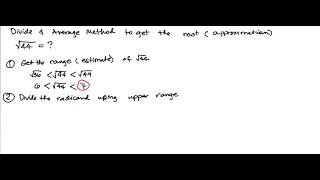 Divide & Average Method to get the root (approximation)
√44 = ?
① Get the range (estimate) of √44
√36 < √44 < √49
6 < √44 < 7
② Divide the radicand using upper range